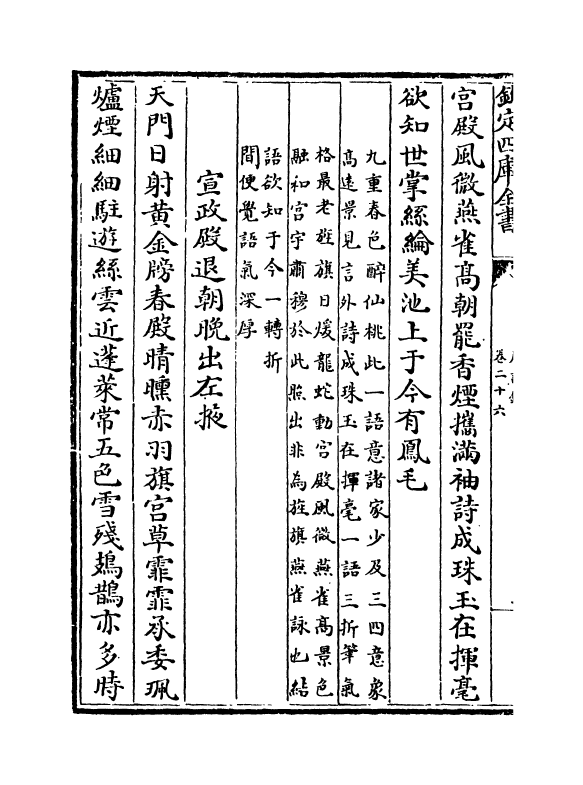 欽定四庫全書
卷二十六
宮殿風微燕雀髙朝罷香煙攜滿袖詩成珠玉在揮毫
欲知世掌絲綸美池上于今有鳳毛
九重春色醉仙桃此一語意諸家少及三四意象
髙逺景見言外詩成珠玉在揮毫一語三折筆氣
格最老旌旗日煖龍蛇動宮殿風微燕雀髙景色
融和宮宇肅穆於此照出非為旌旗燕雀詠也結
語欲知于今一轉折
間便覺語氣深厚
宣政殿退朝晚出左掖
天門日射黃金牓春殿晴曛赤羽旗宮草霏霏承委珮
爐煙細細駐遊絲雲近蓬萊常五色雪殘鳷鵲亦多時